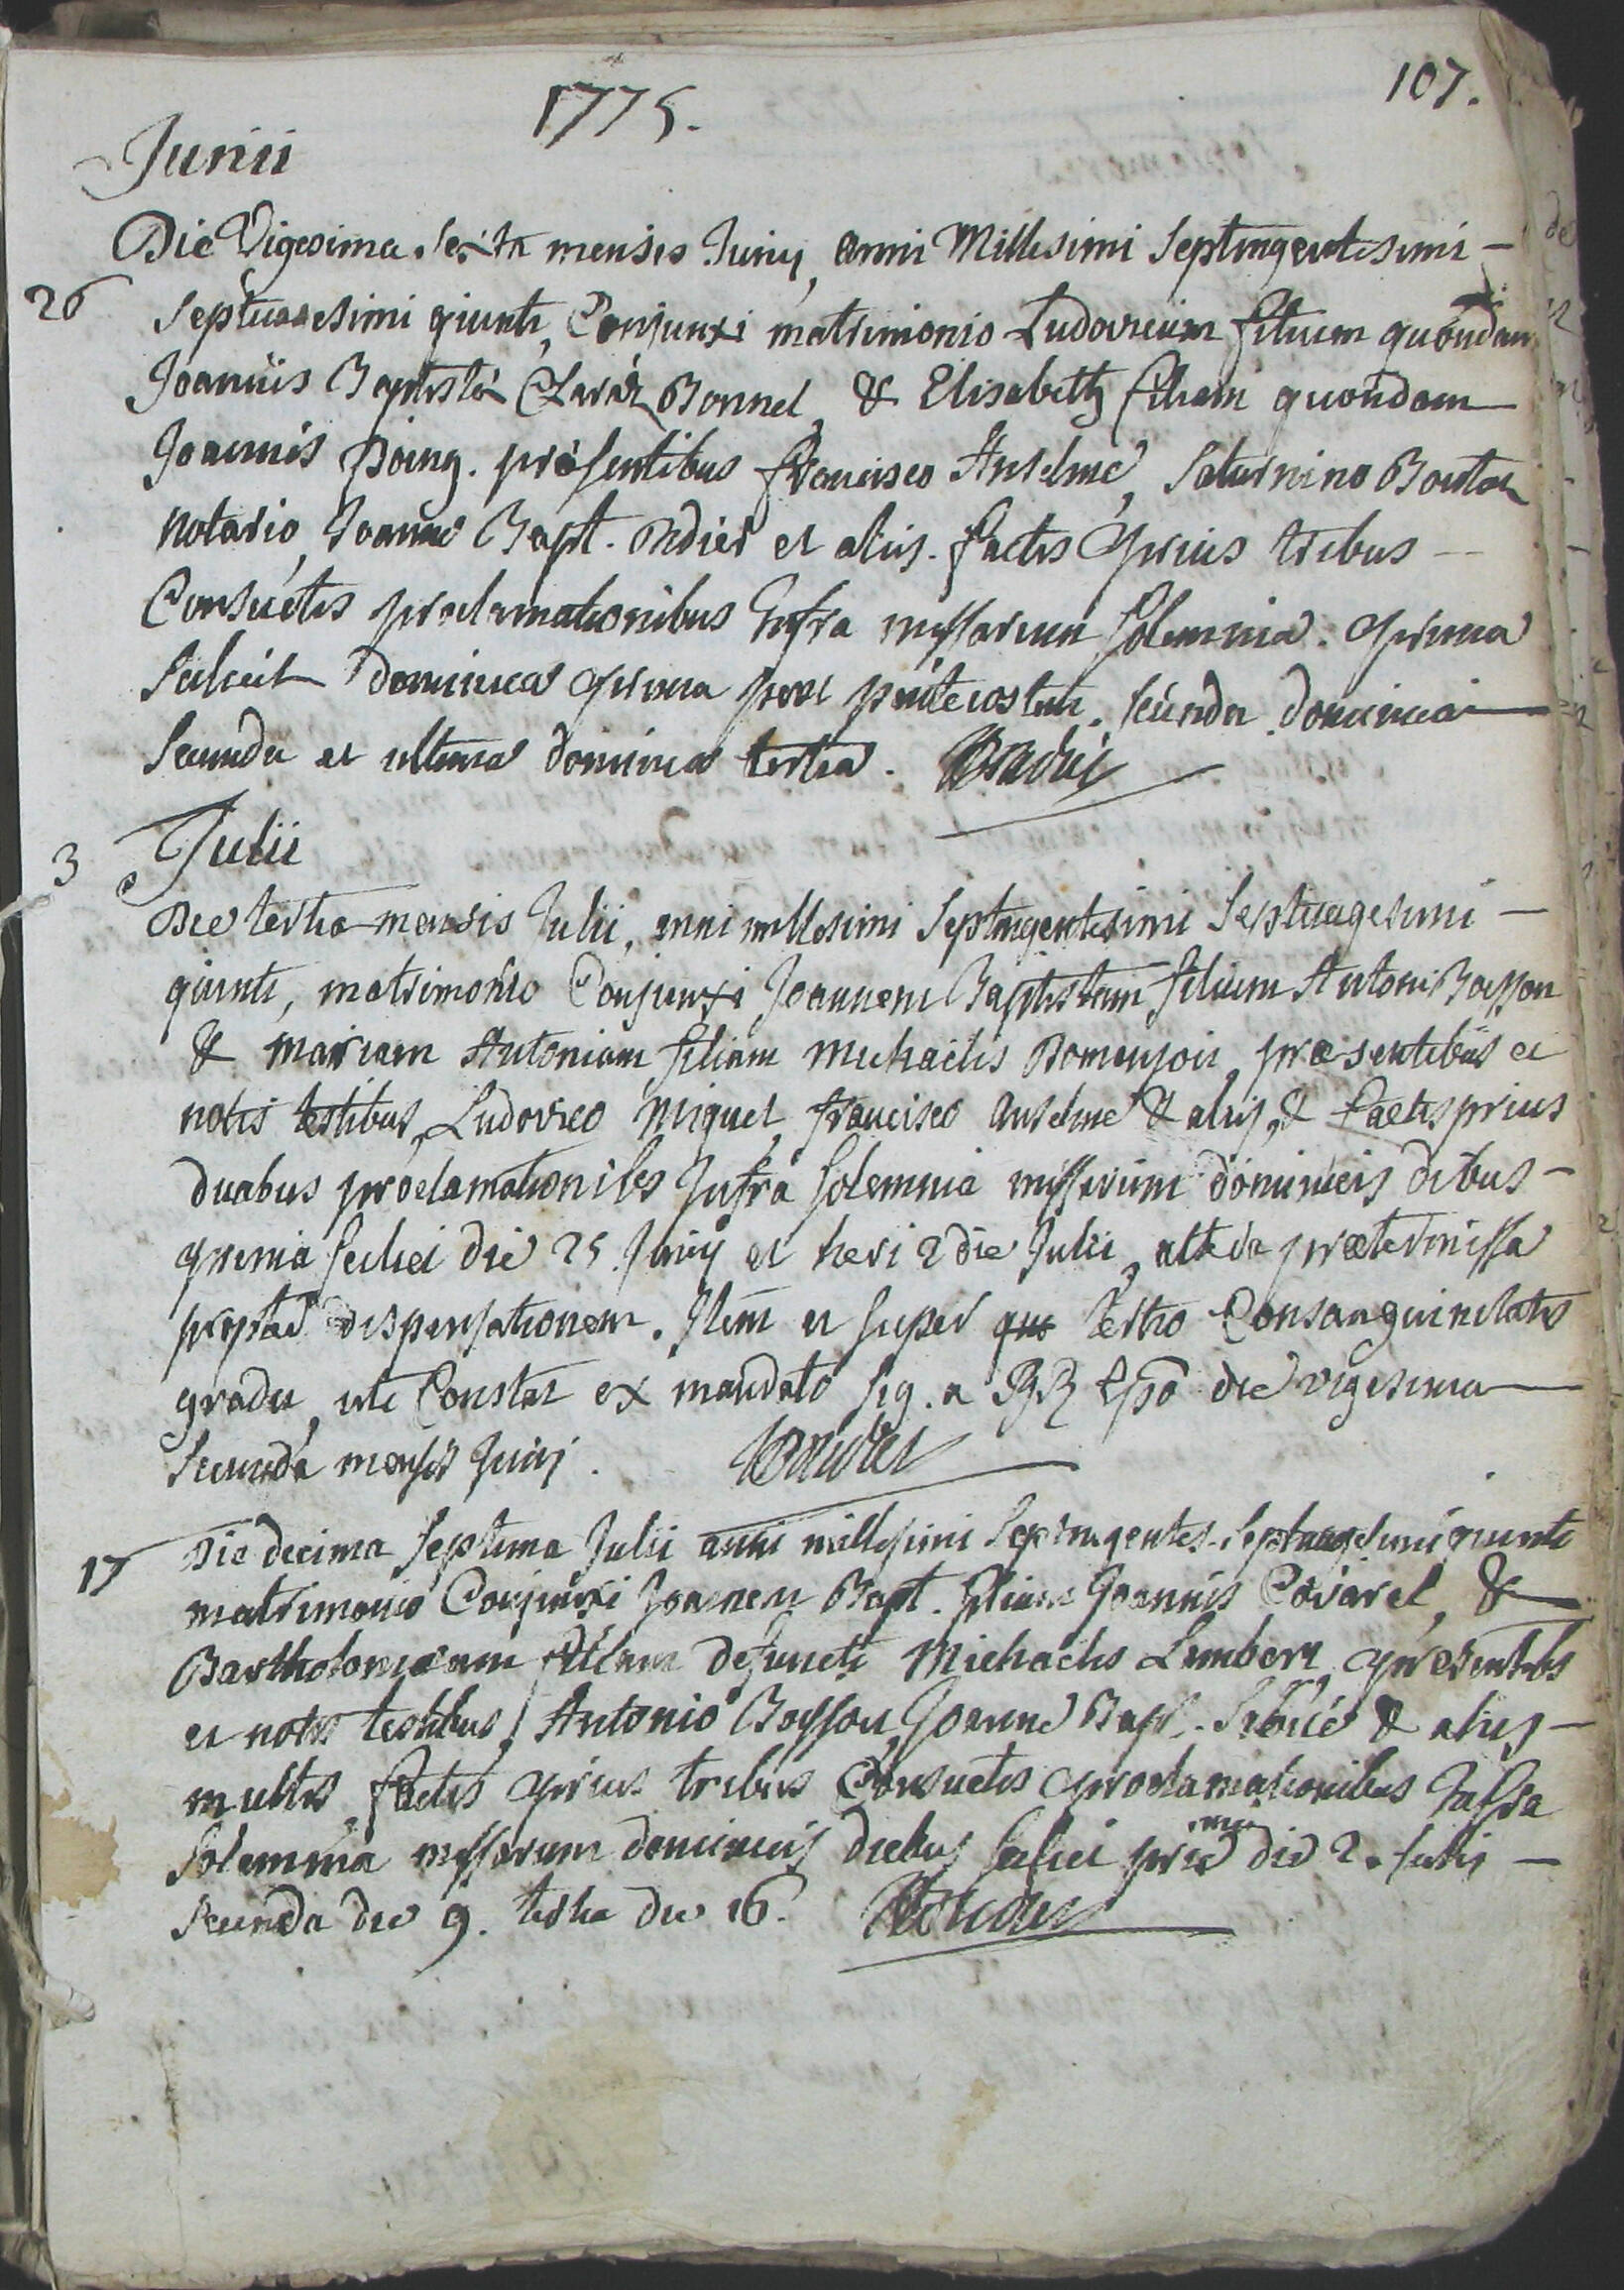 107.
1775.
Junii
Die Vigesima Sexta mensis Junij, anni Millesimi Septingentesimi -
26
Septuagesimi quinti, Conjunxi matrimonio Ludovicum filium quondam
Joannis Baptistæ Bonnel, & Elisabeth filiam quondam
Joannis præsentibus francisco Anselme, Saturnino
notario, Joanne Bapt. et alijs. factis prius tribus --
Consuetis proclamationibus Infra missarum Solemnia. prima
Scilicet dominica prima post pentecosten, secunda dominica
Secunda et ultima dominica tertia.
Julii
3
Die tertia mensis Julii, anni millesimi Septingentesimi Septuagesimi -
quinti, matrimonio Conjunxi Joannem Baptistam filium Antonii Boysson
& mariam Antoniam filiam Michaelis præsentibus et
notis testibus, Ludovico Miquel, francisco Anselme & alijs, & factis prius
duabus proclamationibus Infra Solemnia missarum dominicis diebus -
prima scilicet die 25 Junij et heri 2 die Julii, altera prætermissa
propter dispensationem. Item et super tertio Consanguinitatis
gradu, uti Constat ex mandato sig. a Epō die vigesima
Secunda mensis Junij.
17
Die decima Septima Julii anni millesimi Septingentes. Septuagesimi quinti
matrimonio Conjunxi Joannem Bapt. filium Joannis & 
Bartholomæam filiam defuncti Michaelis Lambert, præsentibus
et notis testibus, Antonio Boysson, Joanne Bapt. & alijs -
multis factis prius tribus Consuetis proclamationibus Infra
Solemnia missarum dominicis diebus scilicet prima die 2. Julij -
Secunda die 9. tertia die 16.